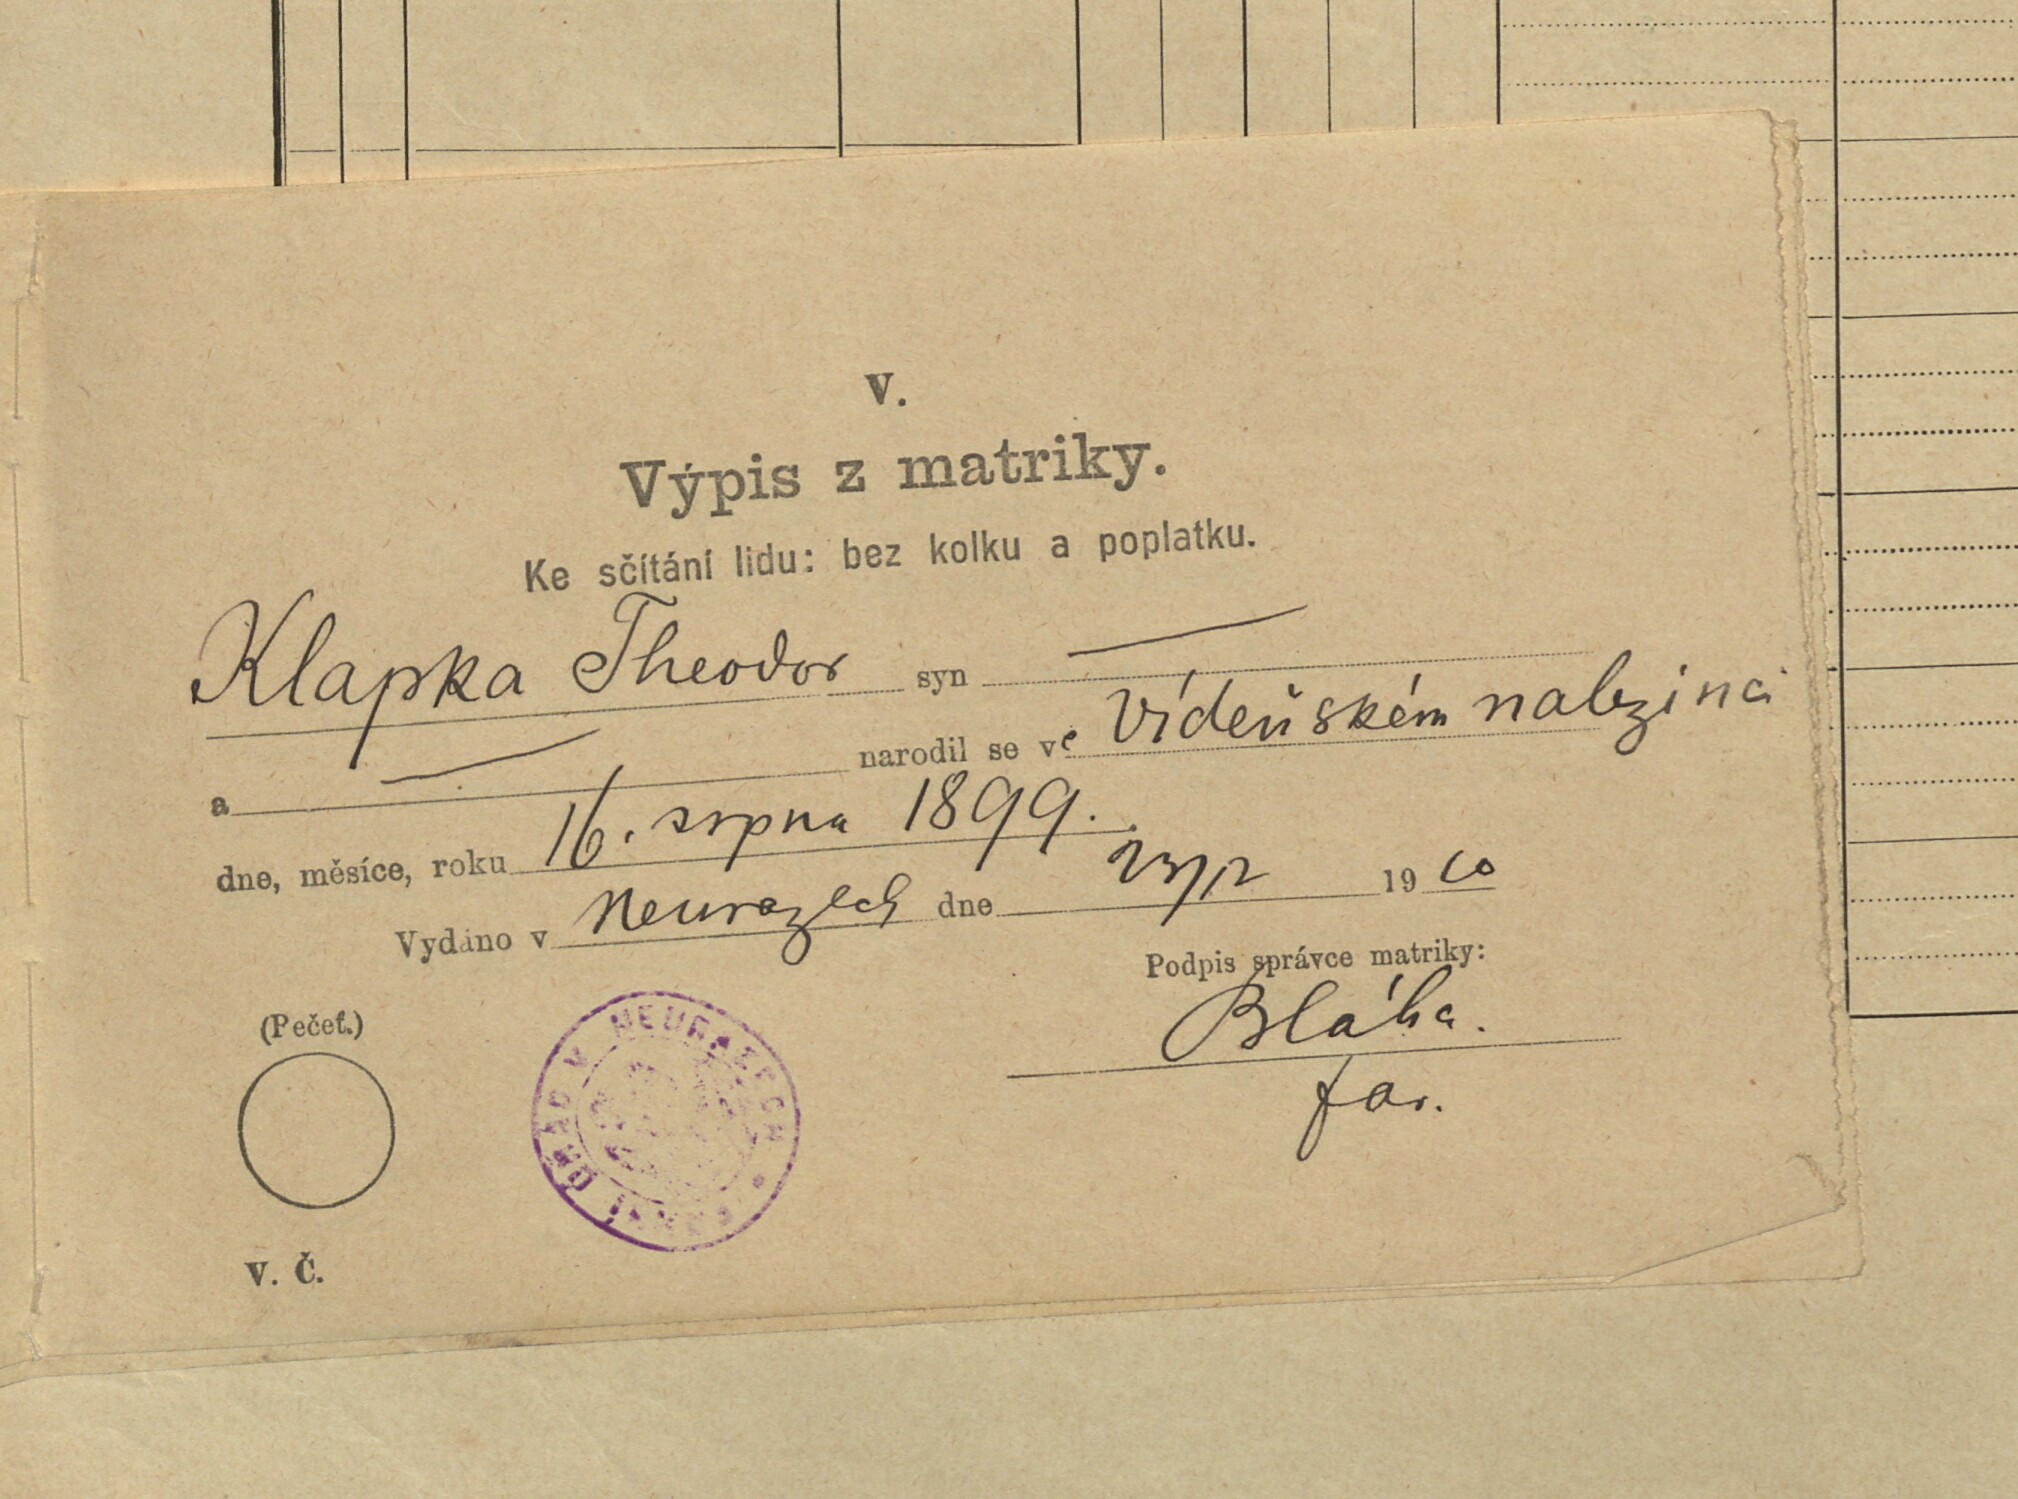 V.
Výpis z matriky.
Ke sčítání lidu: bez kolku a poplatku.
Klapka Theodor syn
a narodil se ve Vídeňském nalezinci
dne, měsíce, roku 16. srpna 1899.
Vydáno v Neurazech dne 23/12 1910
Podpis správce matriky:
Bláha.
far.
(Pečeť.)
V NEURAZECH * FARNÍ ÚŘAD
V. Č.